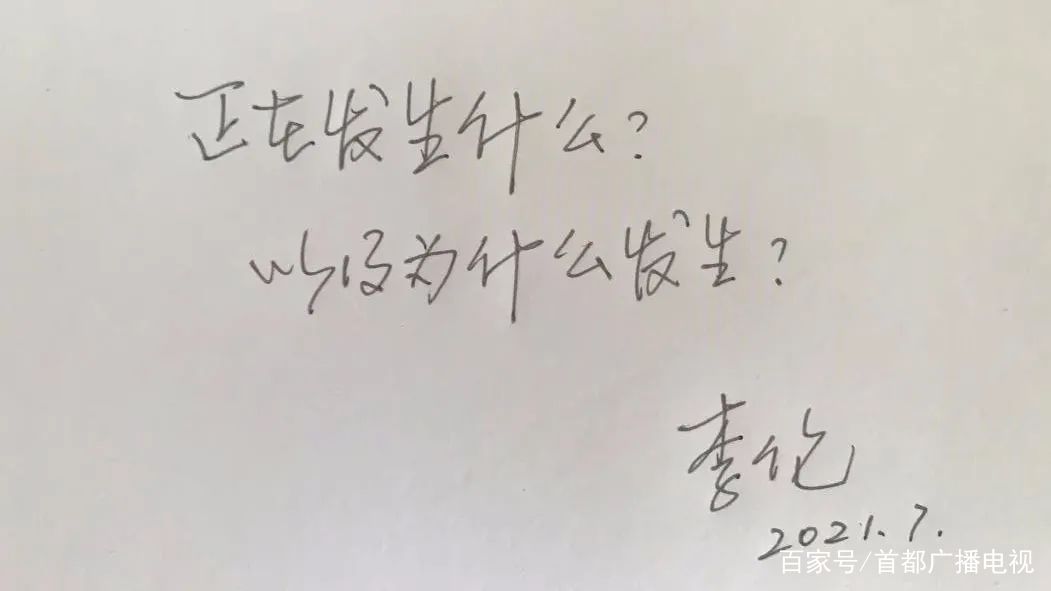 正在发生什么?
以及为什么发生?
李伦
2021.7.
百家号/首都广播电视